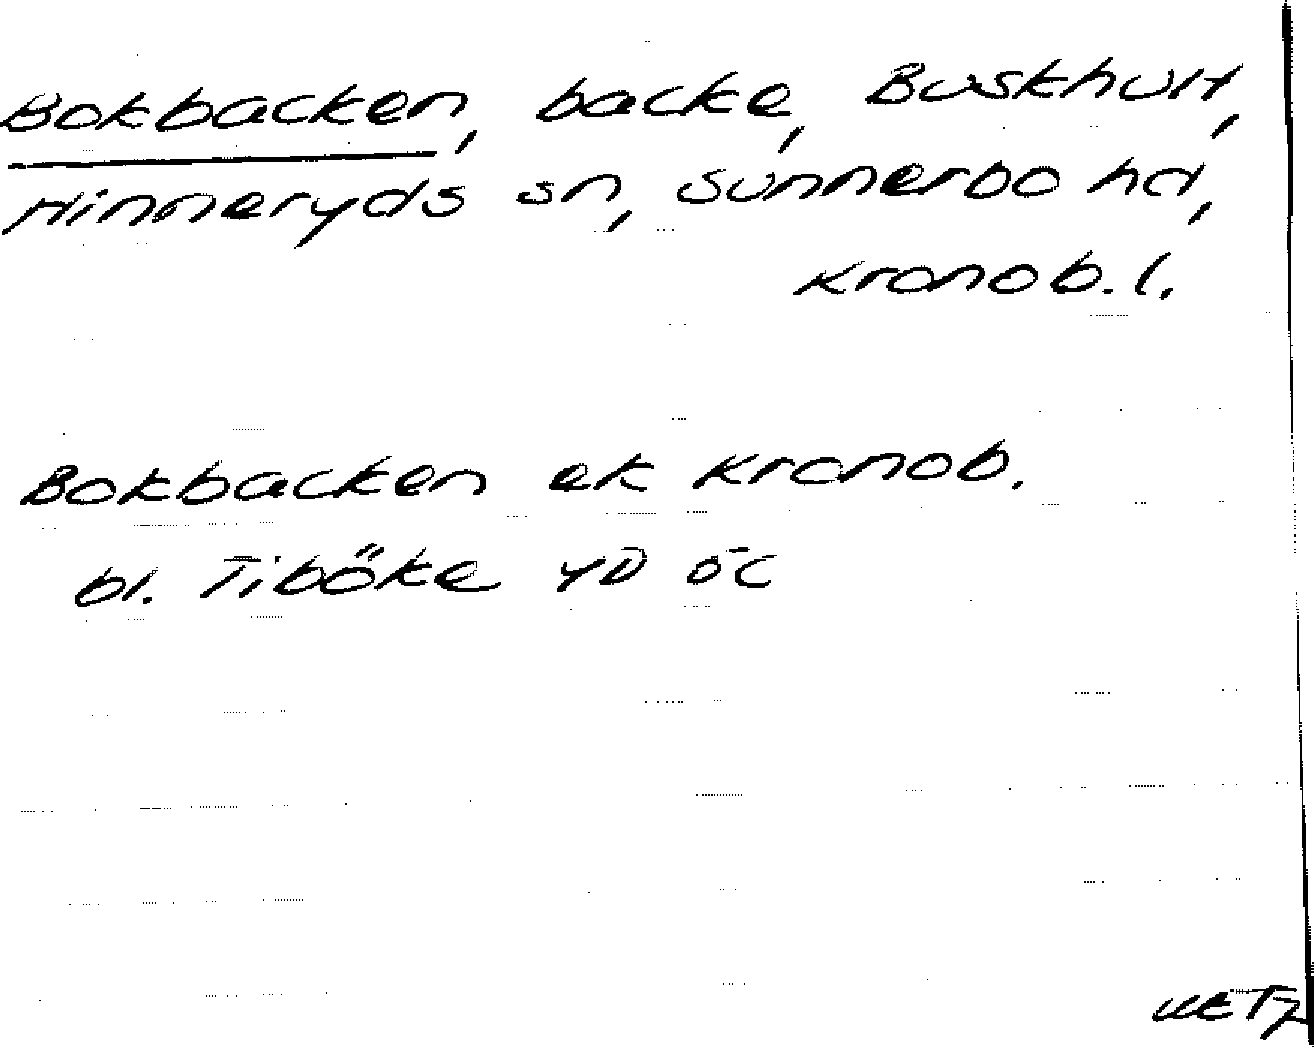 Bokbacken, backe, Buskhult,
Hinneryds sn, Sunnerbo hd,
Kronob. l.
Bokbacken ek Kronob.
bl. Tiböke 4D öc